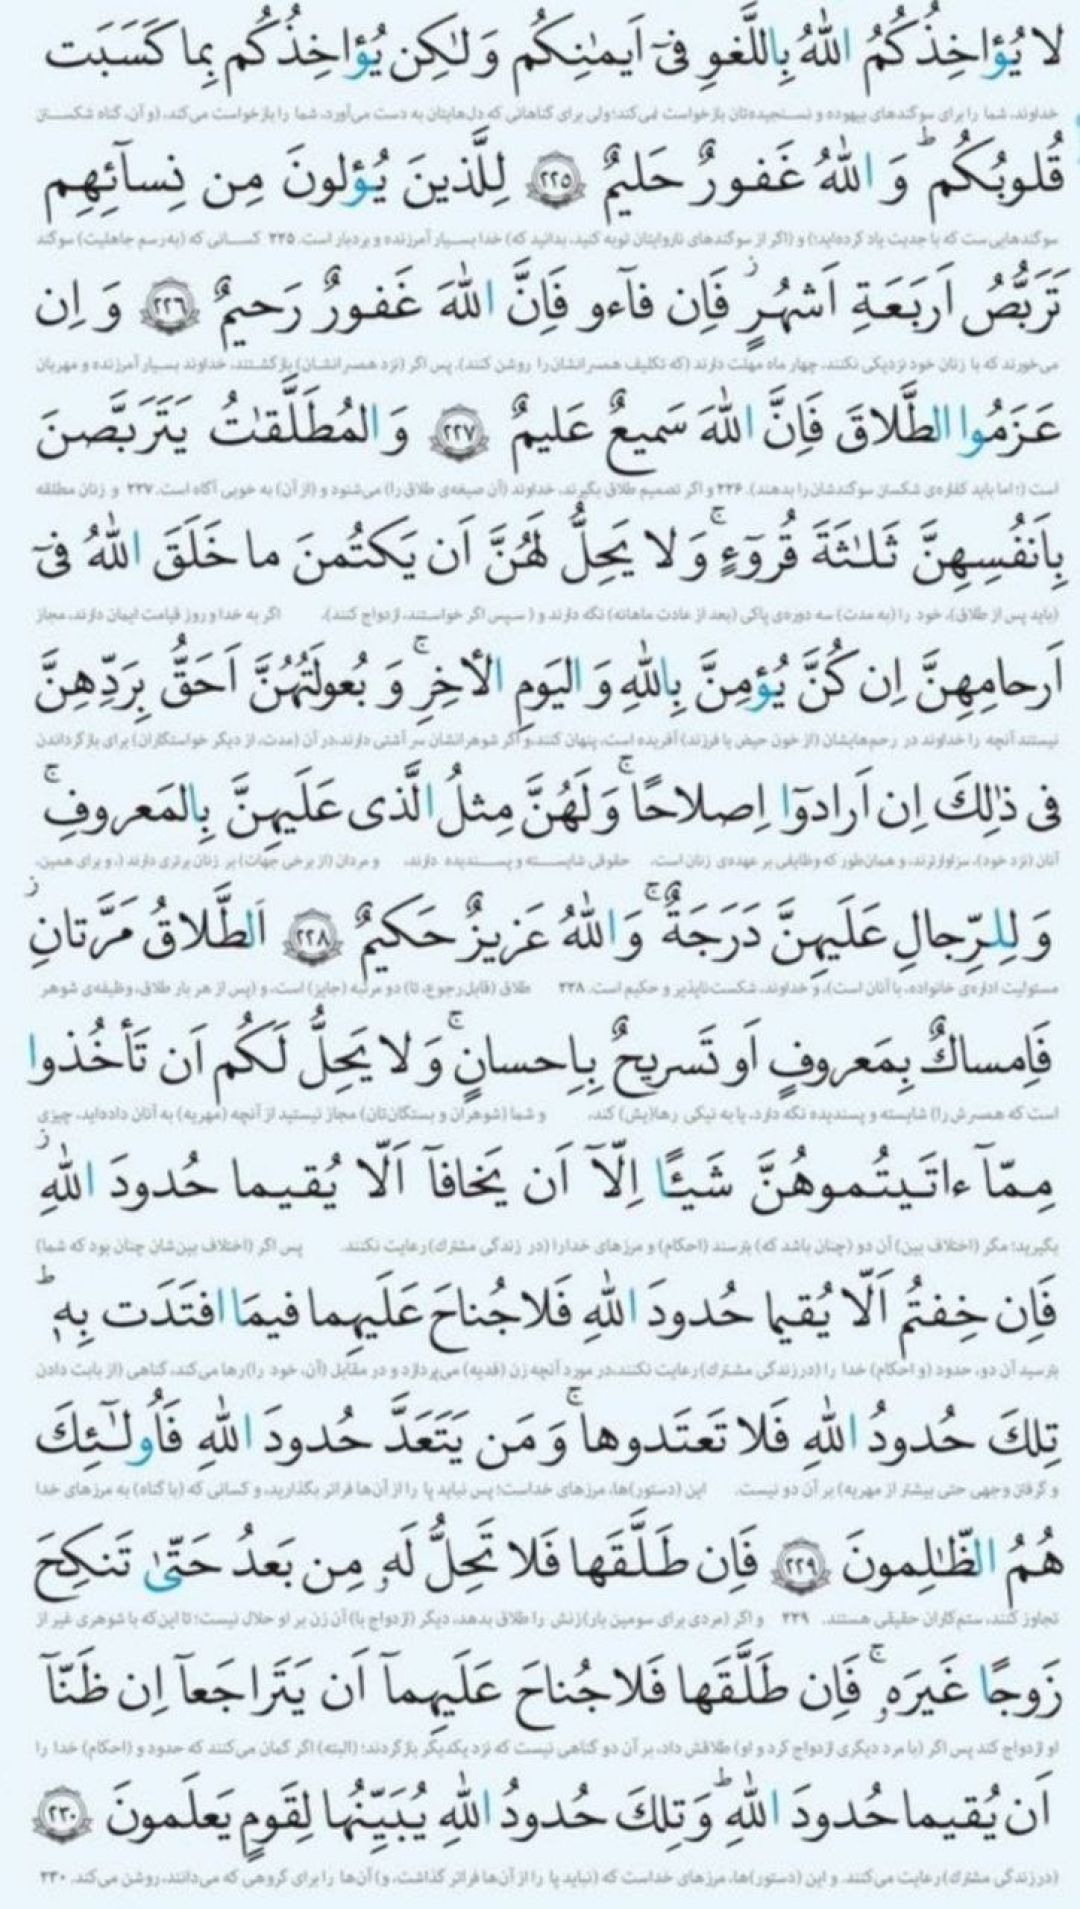 لا يُؤاخِذُكُمُ اللّٰهُ بِاللَّغوِ فىٓ اَيمٰنِكُم وَ لٰكِن يُؤاخِذُكُم بِما كَسَبَت
خداوند، شما را برای سوگندهای بیهوده و نسنجیده‌تان بازخواست نمی‌کند؛ ولی برای گناهانی که دل‌هایتان به دست می‌آورد، شما را بازخواست می‌کند، (و آن، گناه شکستن
قُلوبُكُم ؕ وَ اللّٰهُ غَفورٌ حَليمٌ ﴿٢٢٥﴾ لِلَّذينَ يُؤلونَ مِن نِسآئِهِم
سوگندهایی‌ست که با جدیت یاد کرده‌اید؛) و (اگر از سوگندهای ناروایتان توبه کنید، بدانید که) خدا بسیار آمرزنده و بردبار است. ۲۲۵ کسانی که (به‌رسم جاهلیت) سوگند
تَرَبُّصُ اَربَعَةِ اَشهُرٍ ز فَاِن فآءو فَاِنَّ اللّٰهَ غَفورٌ رَحيمٌ ﴿٢٢٦﴾ وَ اِن
می‌خورند که با زنان خود نزدیکی نکنند، چهار ماه مهلت دارند (که تکلیف همسرانشان را روشن کنند). پس اگر (نزد همسرانشان) بازگشتند، خداوند بسیار آمرزنده و مهربان
عَزَمُوا الطَّلاقَ فَاِنَّ اللّٰهَ سَميعٌ عَليمٌ ﴿٢٢٧﴾ وَ المُطَلَّقٰتُ يَتَرَبَّصنَ
است (؛ اما باید کفاره‌ی شکستن سوگندشان را بدهند). ۲۲۶ و اگر تصمیم طلاق بگیرند، خداوند (آن صیغه‌ی طلاق را) می‌شنود و (از آن) به خوبی آگاه است. ۲۲۷ و زنان مطلقه
بِاَنفُسِهِنَّ ثَلٰثَةَ قُرٓوءٍ ۚ وَ لا يَحِلُّ لَهُنَّ اَن يَكتُمنَ ما خَلَقَ اللّٰهُ فىٓ
(باید پس از طلاق)، خود را (به مدت) سه دوره‌ی پاکی (بعد از عادت ماهانه) نگه دارند و (سپس اگر خواستند، ازدواج کنند). اگر به خدا و روز قیامت ایمان دارند، مجاز
اَرحامِهِنَّ اِن كُنَّ يُؤمِنَّ بِاللّٰهِ وَ اليَومِ الأخِرِ ۚ وَ بُعولَتُهُنَّ اَحَقُّ بِرَدِّهِنَّ
نیستند آنچه را خداوند در رحم‌هایشان (از خون حیض یا فرزند) آفریده است، پنهان کنند، و اگر شوهرانشان سر آشتی دارند، در آن (مدت، از دیگر خواستگاران) برای بازگرداندن
فى ذٰلِكَ اِن اَرادوٓا اِصلاحًا ۚ وَ لَهُنَّ مِثلُ الَّذى عَلَيهِنَّ بِالمَعروفِ ۚ
آنان (نزد خود)، سزاوارترند، و همان‌طور که وظایفی بر عهده‌ی زنان است، حقوقی شایسته و پسندیده دارند، و مردان (از برخی جهات) بر زنان برتری دارند (، و برای همین،
وَ لِلرِّجالِ عَلَيهِنَّ دَرَجَةٌ ۚ وَ اللّٰهُ عَزيزٌ حَكيمٌ ﴿٢٢٨﴾ اَلطَّلاقُ مَرَّتانِ ز
مسئولیت اداره‌ی خانواده، با آنان است)، و خداوند، شکست‌ناپذیر و حکیم است. ۲۲۸ طلاق (قابل رجوع، تا) دو مرتبه (جایز) است، و (پس از هر بار طلاق، وظیفه‌ی شوهر
فَاِمساكٌ بِمَعروفٍ اَو تَسريحٌ بِاِحسانٍ ۚ وَ لا يَحِلُّ لَكُم اَن تَأخُذوا
است که همسرش را) شایسته و پسندیده نگه دارد، یا به نیکی رها(یش) کند، و شما (شوهران و بستگان‌تان) مجاز نیستید از آنچه (مهریه) به آنان داده‌اید، چیزی
مِمّآ ءاتَيتُموهُنَّ شَيئًا اِلّآ اَن يَخافآ اَلّا يُقيما حُدودَ اللّٰهِ ز
بگیرید؛ مگر (اختلاف بین) آن دو (چنان باشد که) بترسند (احکام) و مرزهای خدا را (در زندگی مشترک) رعایت نکنند. پس اگر (اختلاف بین‌شان چنان بود که شما)
فَاِن خِفتُم اَلّا يُقيما حُدودَ اللّٰهِ فَلا جُناحَ عَلَيهِما فيمَا افتَدَت بِهٖ ؕ
بترسید آن دو، حدود (و احکام) خدا را (در زندگی مشترک) رعایت نکنند، در مورد آنچه زن (فدیه) می‌پردازد و در مقابل (آن، خود را) رها می‌کند، گناهی (از بابت دادن
تِلكَ حُدودُ اللّٰهِ فَلا تَعتَدوها ۚ وَ مَن يَتَعَدَّ حُدودَ اللّٰهِ فَاُولٰٓئِكَ
و گرفتن وجهی حتی بیشتر از مهریه) بر آن دو نیست. این (دستور)ها، مرزهای خداست؛ پس نباید پا را از آن‌ها فراتر بگذارید، و کسانی که (با گناه) به مرزهای خدا
هُمُ الظّٰلِمونَ ﴿٢٢٩﴾ فَاِن طَلَّقَها فَلا تَحِلُّ لَهٗ مِن بَعدُ حَتّىٰ تَنكِحَ
تجاوز کنند، ستم‌کاران حقیقی هستند. ۲۲۹ و اگر (مردی برای سومین بار) زنش را طلاق بدهد، دیگر (ازدواج با) آن زن بر او حلال نیست؛ تا این‌که با شوهری غیر از
زَوجًا غَيرَهٗ ۚ فَاِن طَلَّقَها فَلا جُناحَ عَلَيهِمآ اَن يَتَراجَعآ اِن ظَنّآ
او ازدواج کند پس اگر (با مرد دیگری ازدواج کرد و او) طلاقش داد، بر آن دو گناهی نیست که نزد یکدیگر بازگردند؛ (البته) اگر گمان می‌کنند که حدود و (احکام) خدا را
اَن يُقيما حُدودَ اللّٰهِ ؕ وَ تِلكَ حُدودُ اللّٰهِ يُبَيِّنُها لِقَومٍ يَعلَمونَ ﴿٢٣٠﴾
(در زندگی مشترک) رعایت می‌کنند. و این (دستور)ها، مرزهای خداست که (نباید پا را از آن‌ها فراتر گذاشت، و) آن‌ها را برای گروهی که می‌دانند، روشن می‌کند. ۲۳۰